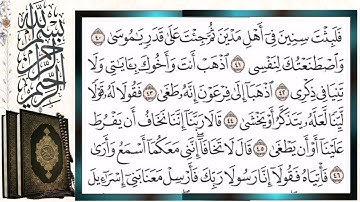 بسم الله الرحمن الرحيم
فَلَبِثْتَ سِنِينَ فِىٓ أَهْلِ مَدْيَنَ ثُمَّ جِئْتَ عَلَىٰ قَدَرٍ يَـٰمُوسَىٰ ٤٠
وَٱصْطَنَعْتُكَ لِنَفْسِى ٤١ ٱذْهَبْ أَنتَ وَأَخُوكَ بِـَٔايَـٰتِى وَلَا
تَنِيَا فِى ذِكْرِى ٤٢ ٱذْهَبَآ إِلَىٰ فِرْعَوْنَ إِنَّهُۥ طَغَىٰ ٤٣ فَقُولَا لَهُۥ قَوْلًا
لَّيِّنًا لَّعَلَّهُۥ يَتَذَكَّرُ أَوْ يَخْشَىٰ ٤٤ قَالَا رَبَّنَآ إِنَّنَا نَخَافُ أَن يَفْرُطَ
عَلَيْنَآ أَوْ أَن يَطْغَىٰ ٤٥ قَالَ لَا تَخَافَآ إِنَّنِى مَعَكُمَآ أَسْمَعُ وَأَرَىٰ ٤٦
فَأْتِيَاهُ فَقُولَآ إِنَّا رَسُولَا رَبِّكَ فَأَرْسِلْ مَعَنَا بَنِىٓ إِسْرَٰٓءِيلَ